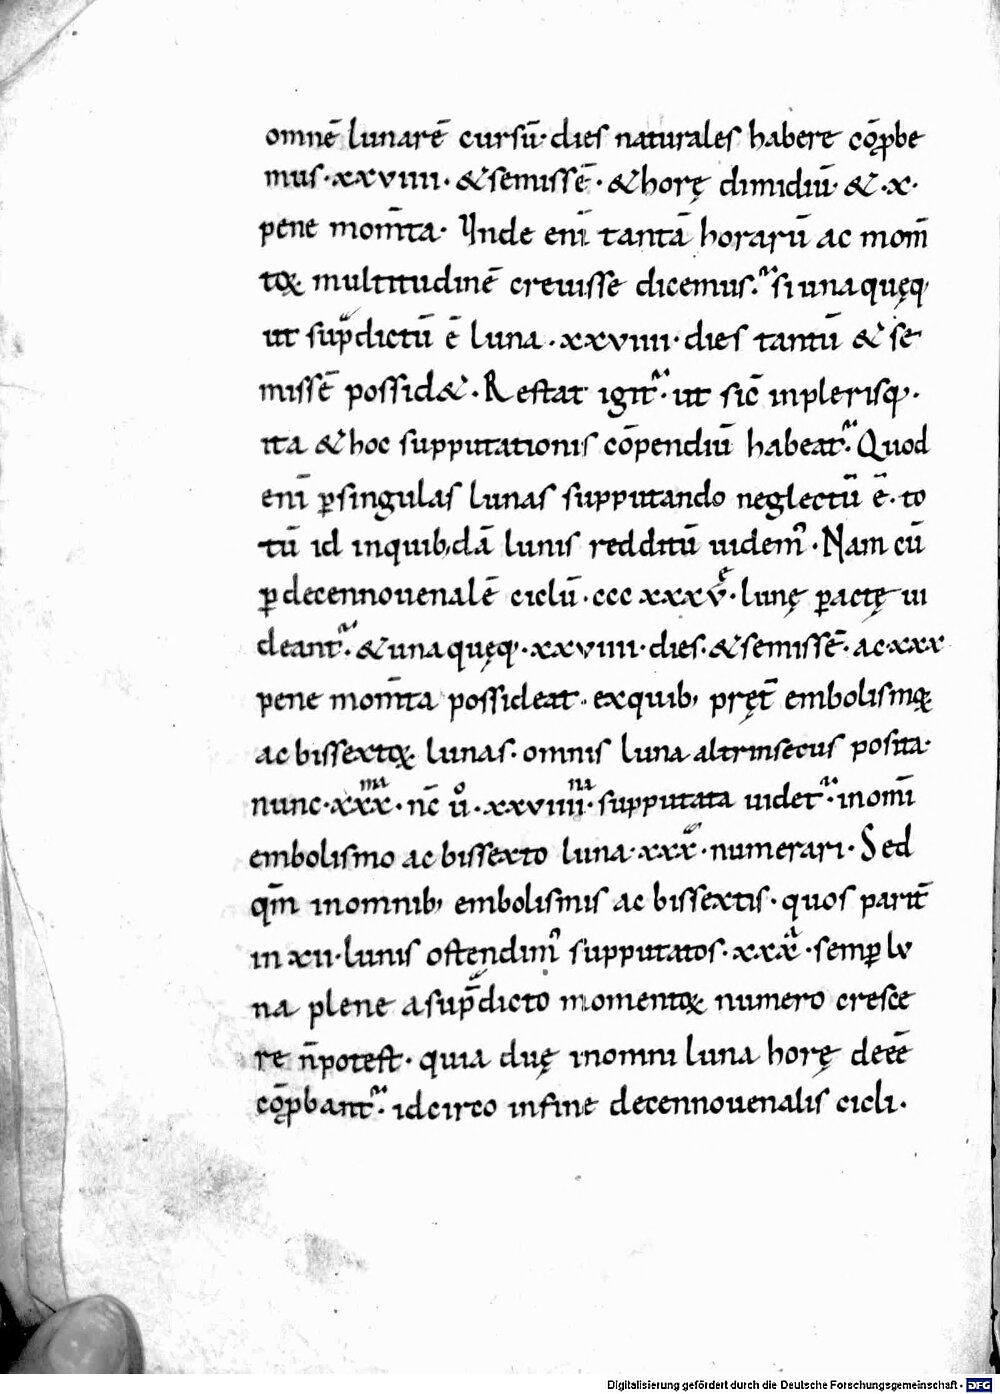 omnē lunarē cursū· dies naturales habere cǭꝓbe
mus· xxviiii· & semissē· & horę dimidiū· & ·x·
pene mom̄ta· Vnde enī tantā horarū ac mom̄
toꝝ multitudinē creuisse dicemus· si unaquęq;
ut sup̄dictū ē luna ·xxviiii· dies tantū & se
missē possid&· Restat igit̄· ut sic̄ inplerisq;·
ita & hoc supputationis cōpendiū habeat̄· Quod
enī ꝑsingulas lunas supputando neglectū ē· to
tū id inquib;dā lunis redditū uidem᾽· Nam cū
ꝑ decennouenalē ciclū· ccc xxxv· lunę ꝑactę ui
deant̄· & unaquęq;· xxviiii· dies· & semissē· ac xxx
pene mom̄ta possideat· exquib; pręt̄ embolismoꝝ
ac bissextoꝝ lunas· omnis luna altrinsecus posita·
nunc· xxx^ma· nc̄ u͛o· xxviiii^na· supputata uidet̄· inomī
embolismo ac bissexto luna· xxx· numerari· Sed
qm̄ inomnib; embolismis ac bissextis· quos parit̄
in xii· lunis ostendim᾽ supputatos· xxx^a· semꝑ lu
na plene asup̄dicto momentoꝝ numero cresce
re n̄potest· quia duę inomni luna horę deeē
cǭꝓbant̄· idcirco infine decennouenalis cicli·
Digitalisierung gefördert durch die Deutsche Forschungsgemeinschaft - DFG